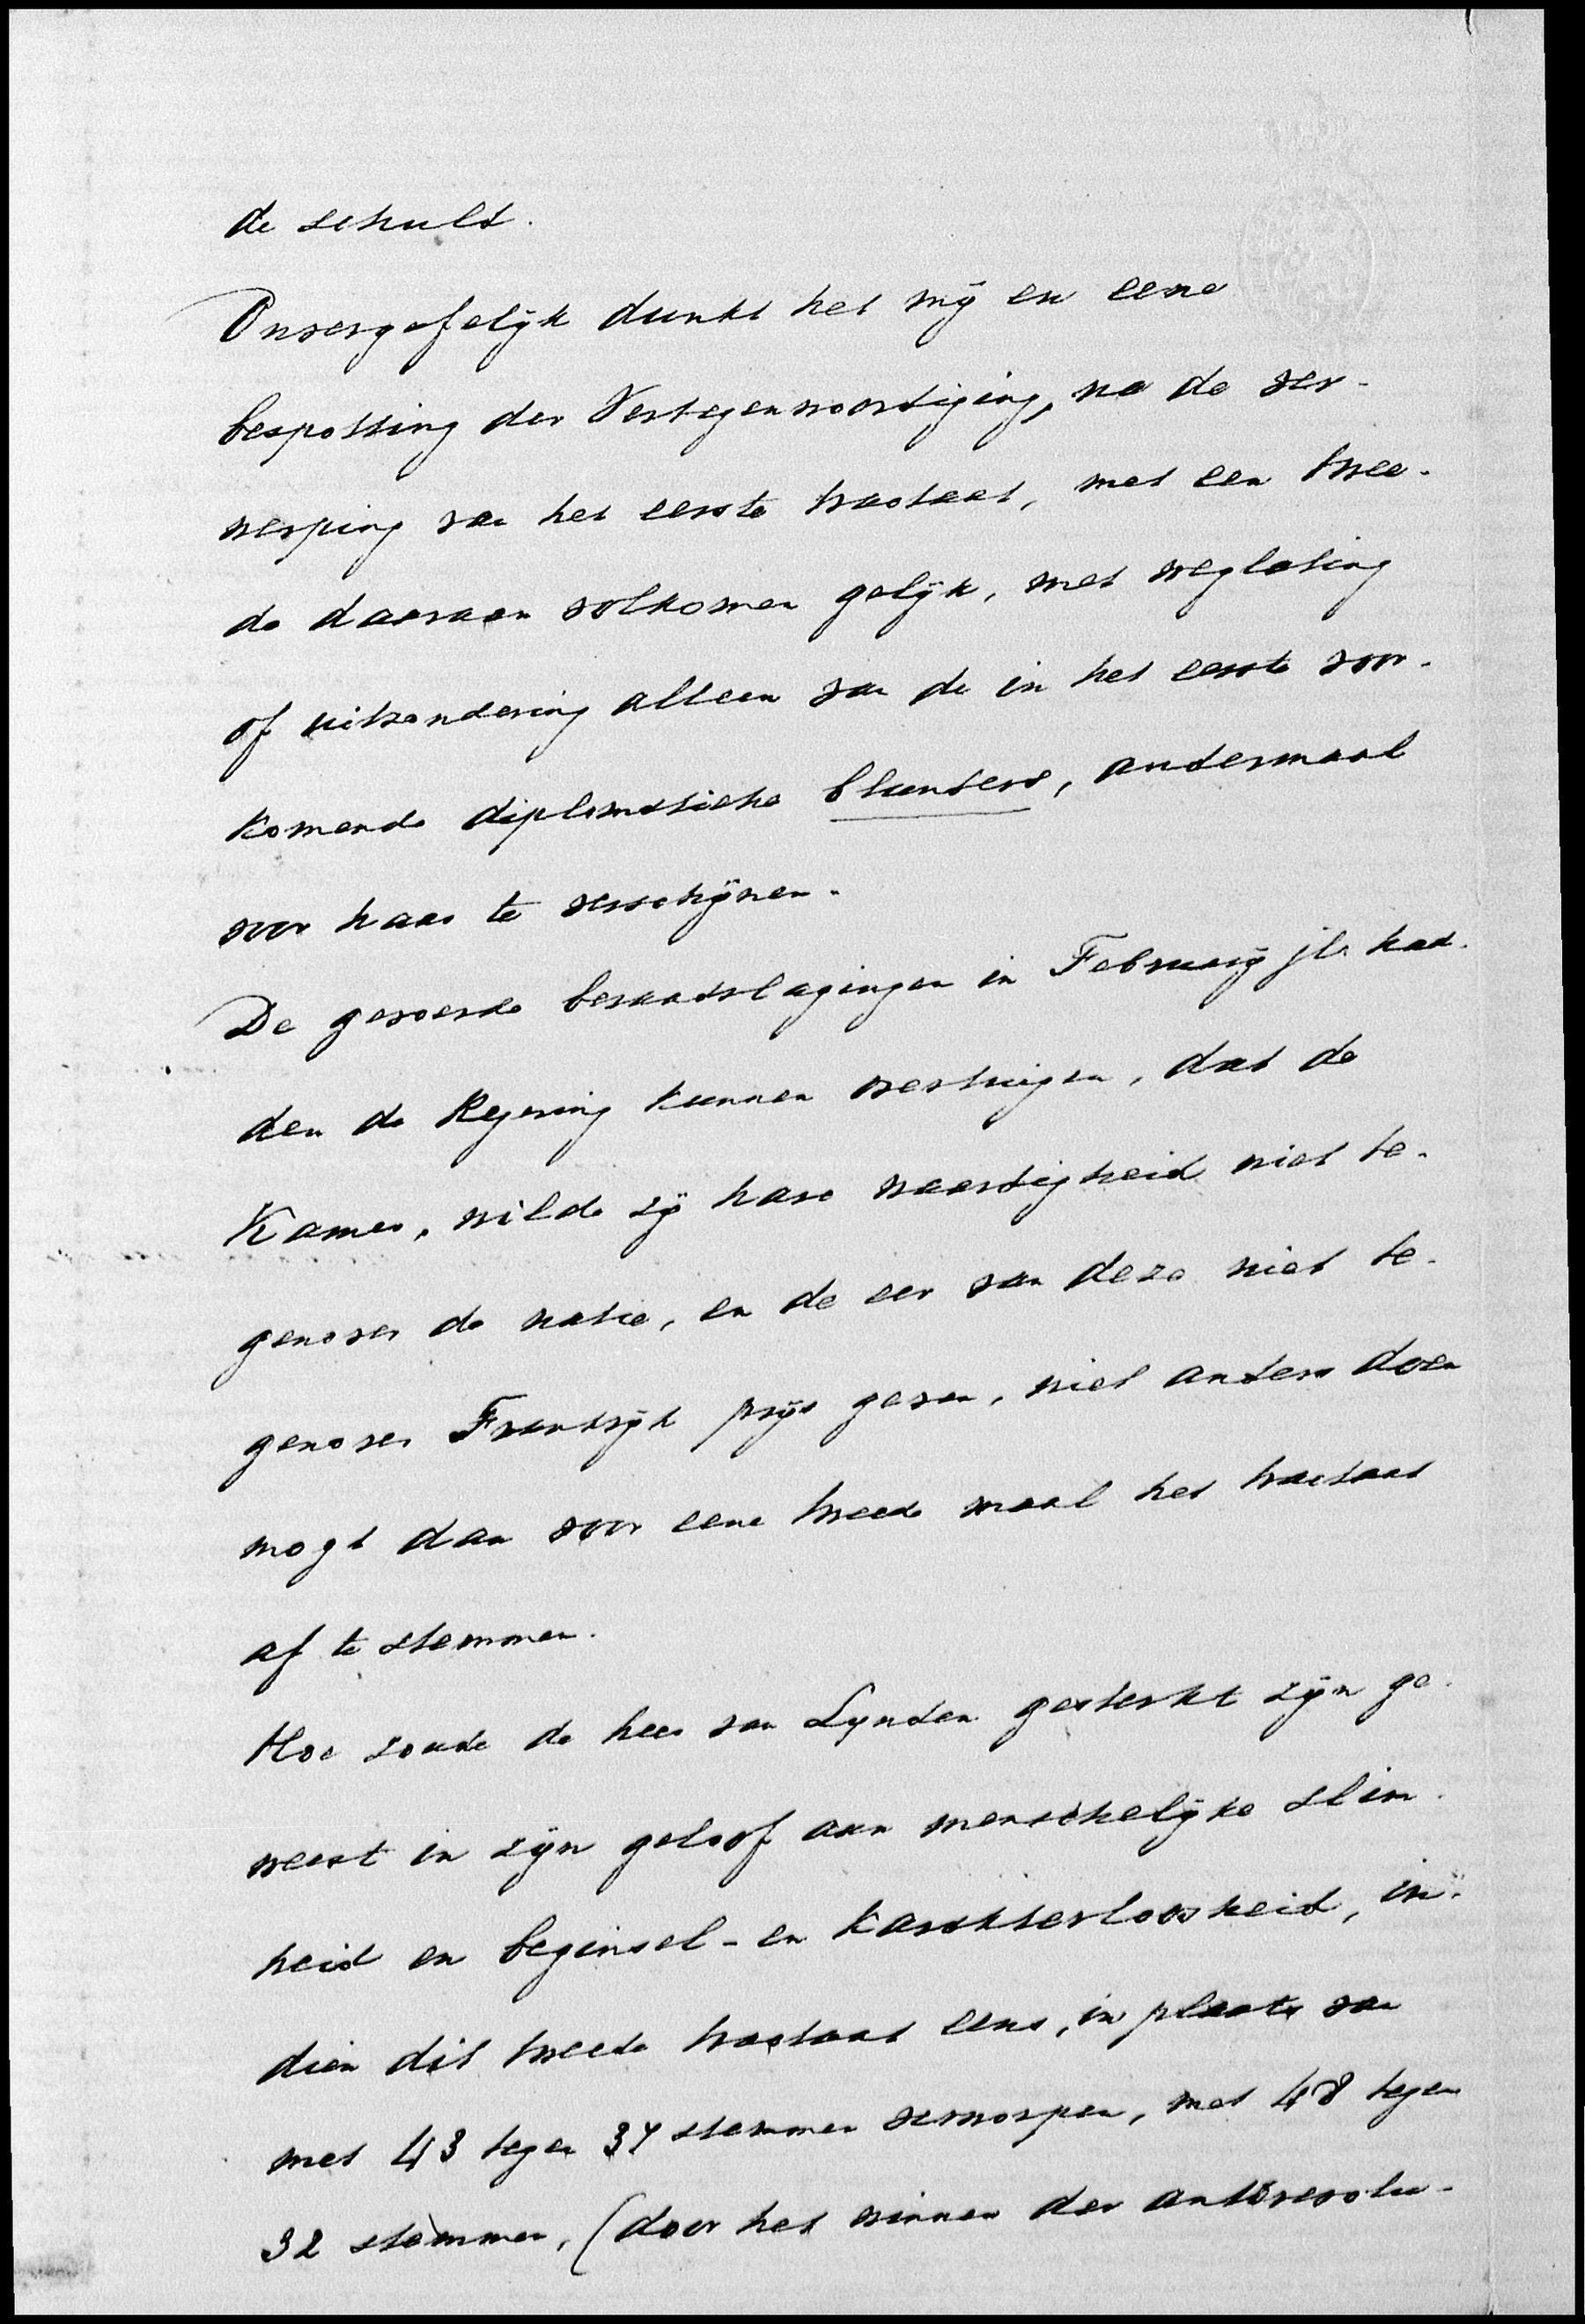 de schuld.
Onvergefelijk dunkt het mij en eene
bespotting der Vertegenwoordiging, na de ver-
werping van het eerste tractaat, met een twee-
de daaraan volkomen gelijk, met weglating
of uitzondering alleen van de in het eerste voor-
komende diplomatieke blunders, andermaal
voor haar te verschijnen.
De gevoerde beraadslagingen in Februarij jl. had-
den de Regering kunnen overtuigen, dat de
Kamer, wilde zij hare waardigheid niet te-
genover de natie, en de eer van deze niet te-
genover Frankrijk prijs geven, niet anders doen
mogt dan voor eene tweede maal het tractaat
af te stemmen.
Hoe zoude de heer van Lynden gesterkt zijn ge-
weest in zijn geloof aan menschelijke slim-
heid en beginsel- en karakterloosheid, in-
dien dit tweede tractaat eens, in plaats van
met 43 tegen 37 stemmen verworpen, met 48 tegen
32 stemmen, (door het winnen der antirevolu-